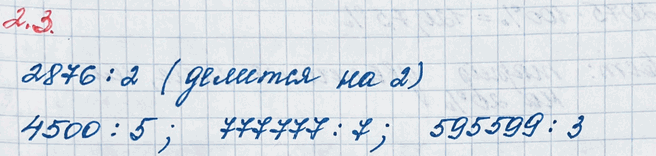 2.3.
2876 : 2 (делится на 2)
4500 : 5 ; 777777 : 7 ; 595599 : 3